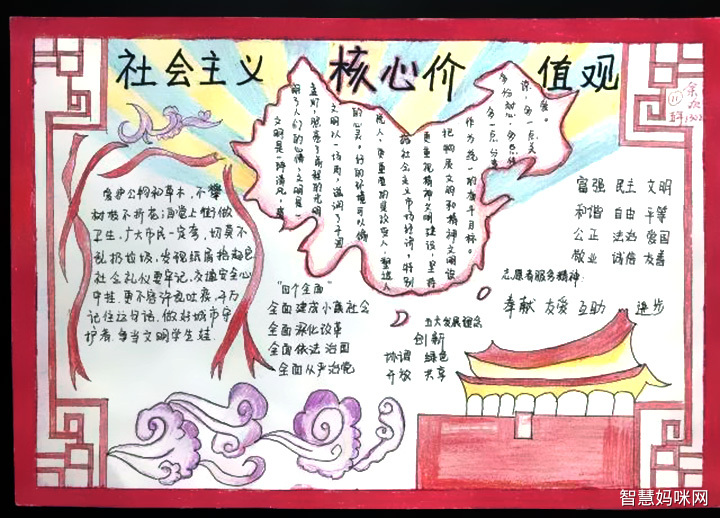 社会主义 核心价 值观
爱护公物和草木，不攀
树枝不折花，海堂上街做
卫生，广大市民一定夸，切莫不
乱扔垃圾，发现纸屑拾起包
社会礼仪要牢记，交通安全心
中挂，更不容许乱吐痰，千万
记住这句话，做好城市守
护者，争当文明学生娃。
文明是一阵清风，
明了人们的心情，文明是一
盏灯，照亮了前程的光明
文明似一场雨，滋润了干涸
的心灵，好的环境可以锻
炼人，更重要的是改变人，塑造人
的社会主义市场经济，特别
更重视精神文明建设，坚持
把物质文明和精神文明设
作为统一的奋斗目标。
多一份耐心，多一点分享
谅，多一点关
爱。
富强 民主 文明
和谐 自由 平等
公正 法治 爱国
敬业 诚信 友善
志愿者服务精神：
奉献 友爱 互助 进步
"四个全面"
全面建成小康社会
全面深化改革
全面依法治国
全面从严治党
五大发展理念
创新
协调 绿色
开放 共享
智慧妈咪网